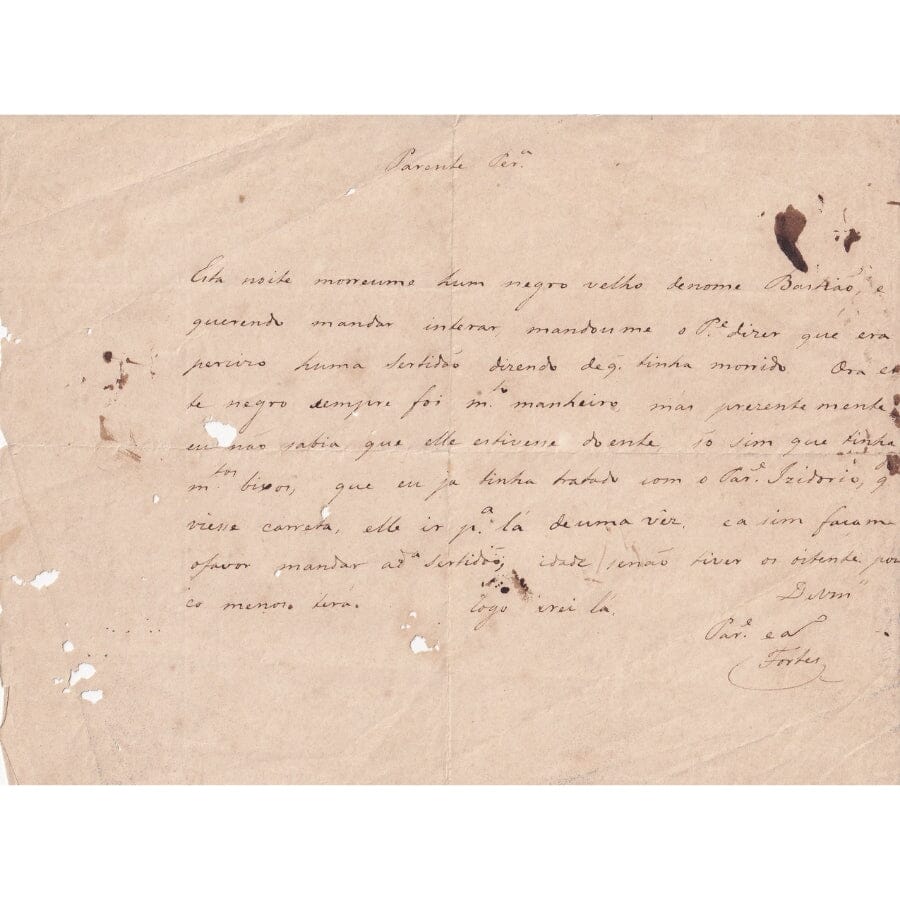 Parente Per.ª
Esta noite morreume hum negro velho denome Bastião, e
querendo mandar interar, mandoume o P.e dizer que era
percizo huma sertidão dizendo deq. tinha morrido Ora es
te negro sempre foi m.to manheiro, mas prezentemente
eu não sabia que elle estivesse doente, só sim que tinha
m.tos bixos, que eu ja tinha tratado com o Par.e Izidorio, q
viesse carreta, elle ir p.ª lá deuma vêz, ea sim façame
ofavor mandar ad.ª sertidão, idade senão tiver os oitenta pou
co menos terá. Logo irei lá.
DeVm
Par.e e a
Fortes